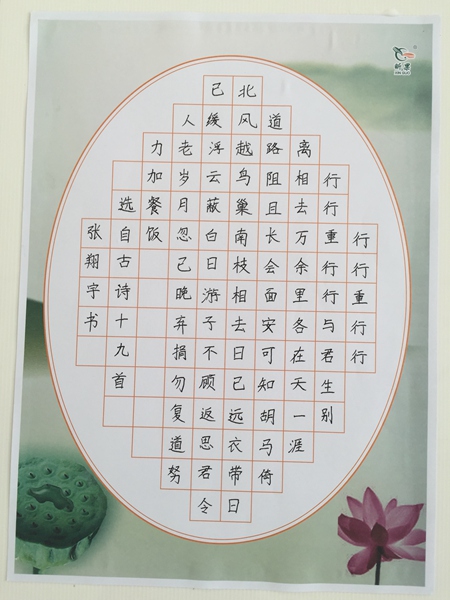 行行重行行
行行重行行与君生别
离相去万余里各在天一涯
道路阻且长会面安可知胡马倚
北风越鸟巢南枝相去日已远衣带日
已缓浮云蔽白日游子不顾返思君令
人老岁月忽已晚弃捐勿复道努
力加餐饭
选自古诗十九首
张翔宇书
XIN GUO